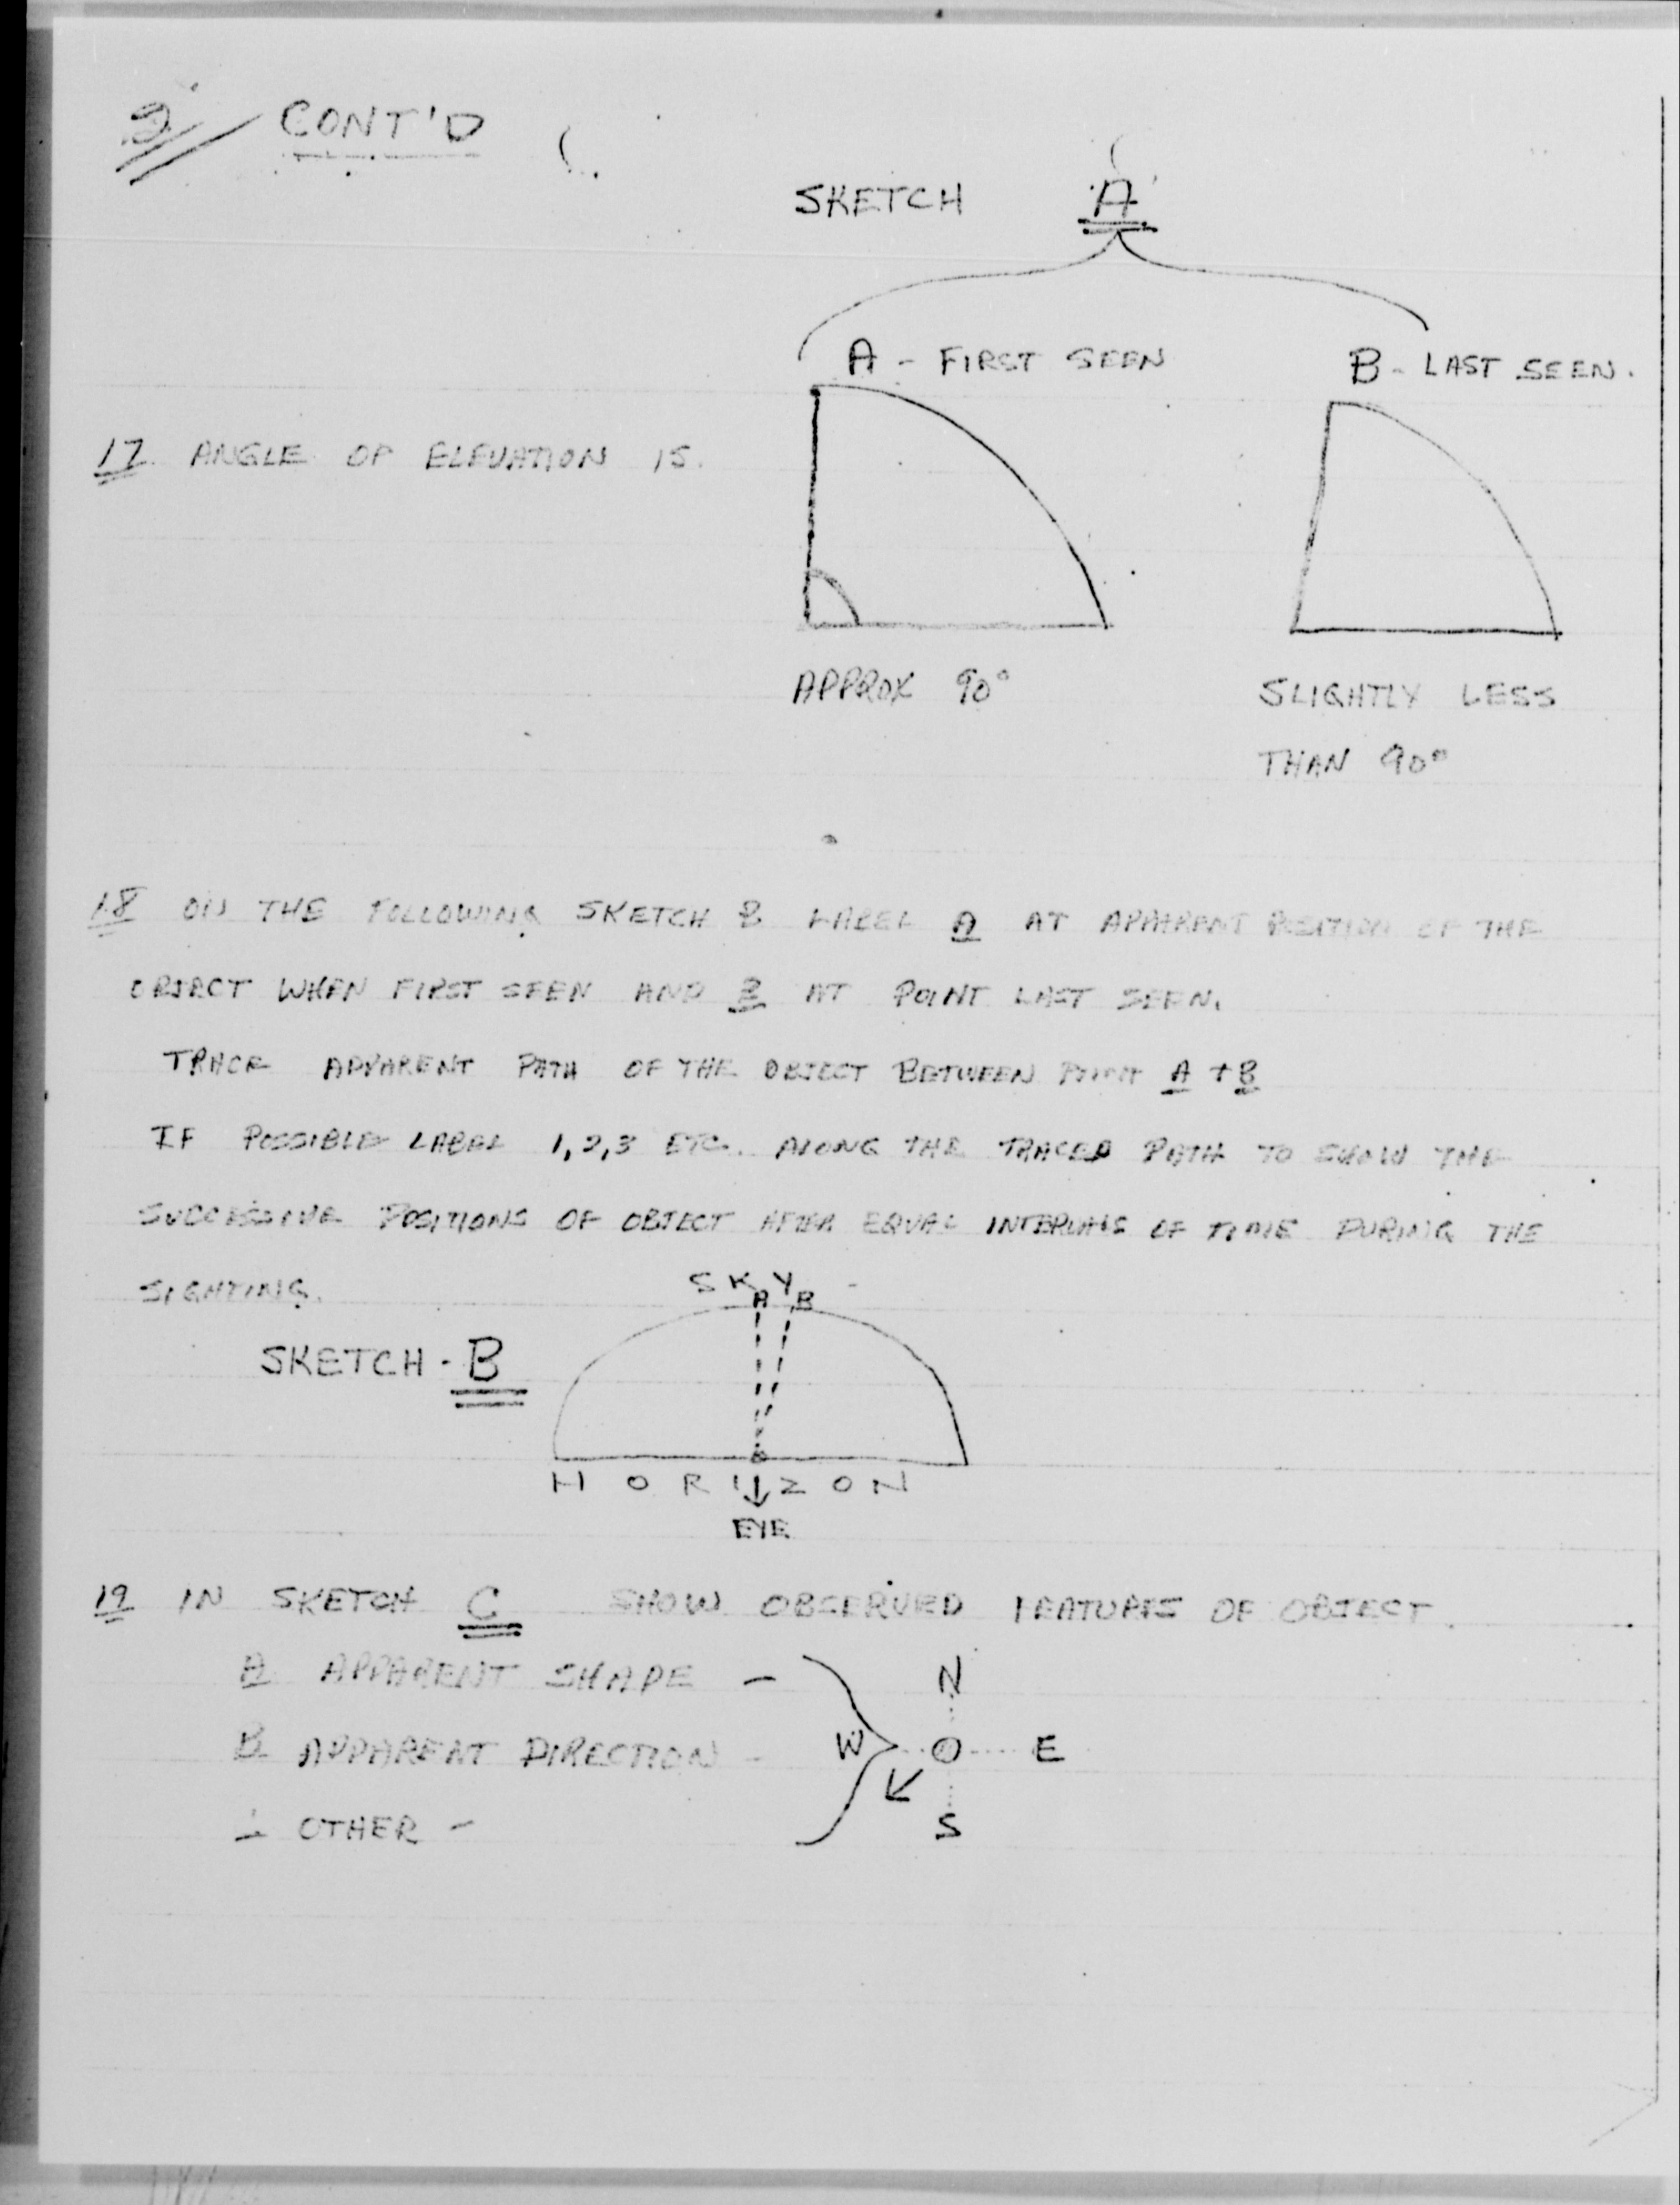 2/ CONT'D
SKETCH A
A - FIRST SEEN
B - LAST SEEN.
17. ANGLE OF ELEVATION IS.
APPROX 90°
SLIGHTLY LESS
THAN 90°
18 ON THE FOLLOWING SKETCH B LABEL A AT APPARENT POSITION OF THE
OBJECT WHEN FIRST SEEN AND B AT POINT LAST SEEN.
TRACE APPARENT PATH OF THE OBJECT BETWEEN POINT A + B
IF POSSIBLE LABEL 1,2,3 ETC. ALONG THE TRACED PATH TO SHOW THE
SUCCESSIVE POSITIONS OF OBJECT AFTER EQUAL INTERVALS OF TIME DURING THE
SIGHTING.
SKY
A B
SKETCH - B
HORIZON
EYE
19 IN SKETCH C SHOW OBSERVED FEATURES OF OBJECT.
A APPARENT SHAPE -
N
B APPARENT DIRECTION -
W O E
OTHER -
S